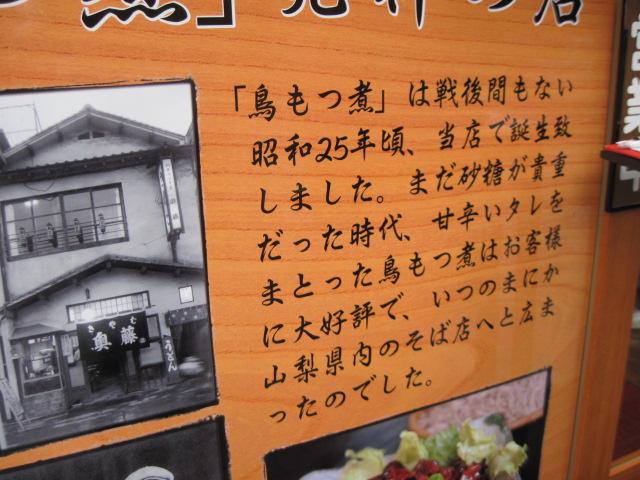 煮」発祥の店
「鳥もつ煮」は戦後間もない
昭和25年頃、当店で誕生致
しました。まだ砂糖が貴重
だった時代、甘辛いタレを
まとった鳥もつ煮はお客様
に大好評で、いつのまにか
山梨県内のそば店へと広ま
ったのでした。
きやむ
奥藤
うどん